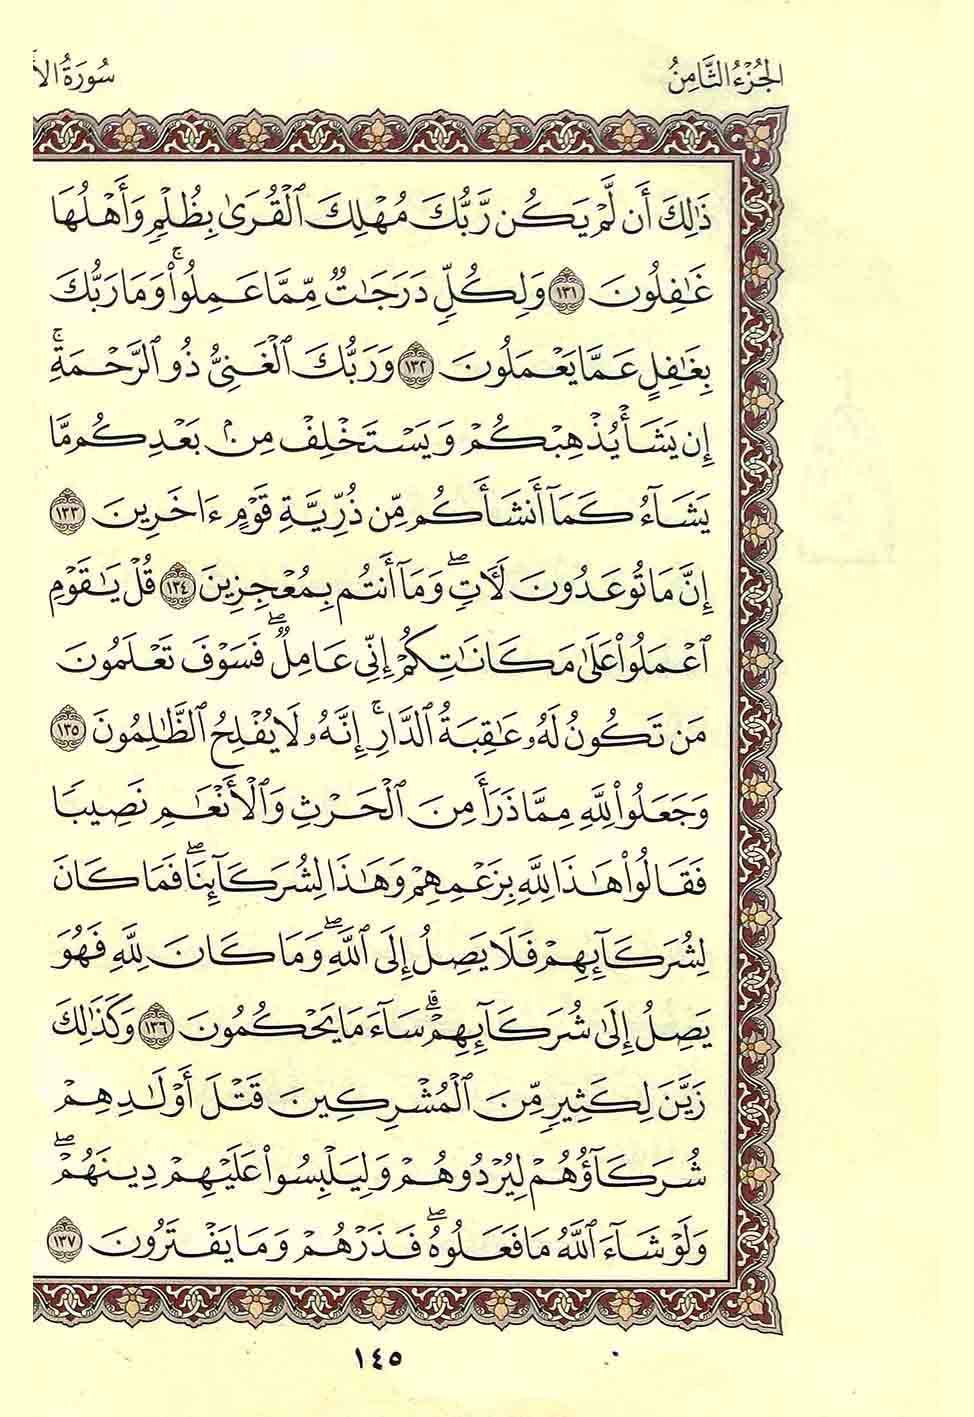 الجُزْءُ الثَّامِنُ
سُورَةُ
ذَٰلِكَ أَن لَّمْ يَكُن رَّبُّكَ مُهْلِكَ ٱلْقُرَىٰ بِظُلْمٍ وَأَهْلُهَا
غَٰفِلُونَ ١٣١ وَلِكُلٍّ دَرَجَٰتٌ مِّمَّا عَمِلُوا۟ ۚ وَمَا رَبُّكَ
بِغَٰفِلٍ عَمَّا يَعْمَلُونَ ١٣٢ وَرَبُّكَ ٱلْغَنِىُّ ذُو ٱلرَّحْمَةِ ۚ
إِن يَشَأْ يُذْهِبْكُمْ وَيَسْتَخْلِفْ مِنۢ بَعْدِكُم مَّا
يَشَآءُ كَمَآ أَنشَأَكُم مِّن ذُرِّيَّةِ قَوْمٍ ءَاخَرِينَ ١٣٣
إِنَّ مَا تُوعَدُونَ لَـَٔاتٍ ۖ وَمَآ أَنتُم بِمُعْجِزِينَ ١٣٤ قُلْ يَٰقَوْمِ
ٱعْمَلُوا۟ عَلَىٰ مَكَانَتِكُمْ إِنِّى عَامِلٌ ۖ فَسَوْفَ تَعْلَمُونَ
مَن تَكُونُ لَهُۥ عَٰقِبَةُ ٱلدَّارِ ۗ إِنَّهُۥ لَا يُفْلِحُ ٱلظَّٰلِمُونَ ١٣٥
وَجَعَلُوا۟ لِلَّهِ مِمَّا ذَرَأَ مِنَ ٱلْحَرْثِ وَٱلْأَنْعَٰمِ نَصِيبًا
فَقَالُوا۟ هَٰذَا لِلَّهِ بِزَعْمِهِمْ وَهَٰذَا لِشُرَكَآئِنَا ۖ فَمَا كَانَ
لِشُرَكَآئِهِمْ فَلَا يَصِلُ إِلَى ٱللَّهِ ۖ وَمَا كَانَ لِلَّهِ فَهُوَ
يَصِلُ إِلَىٰ شُرَكَآئِهِمْ ۗ سَآءَ مَا يَحْكُمُونَ ١٣٦ وَكَذَٰلِكَ
زَيَّنَ لِكَثِيرٍ مِّنَ ٱلْمُشْرِكِينَ قَتْلَ أَوْلَٰدِهِمْ
شُرَكَآؤُهُمْ لِيُرْدُوهُمْ وَلِيَلْبِسُوا۟ عَلَيْهِمْ دِينَهُمْ ۖ
وَلَوْ شَآءَ ٱللَّهُ مَا فَعَلُوهُ ۖ فَذَرْهُمْ وَمَا يَفْتَرُونَ ١٣٧
١٤٥